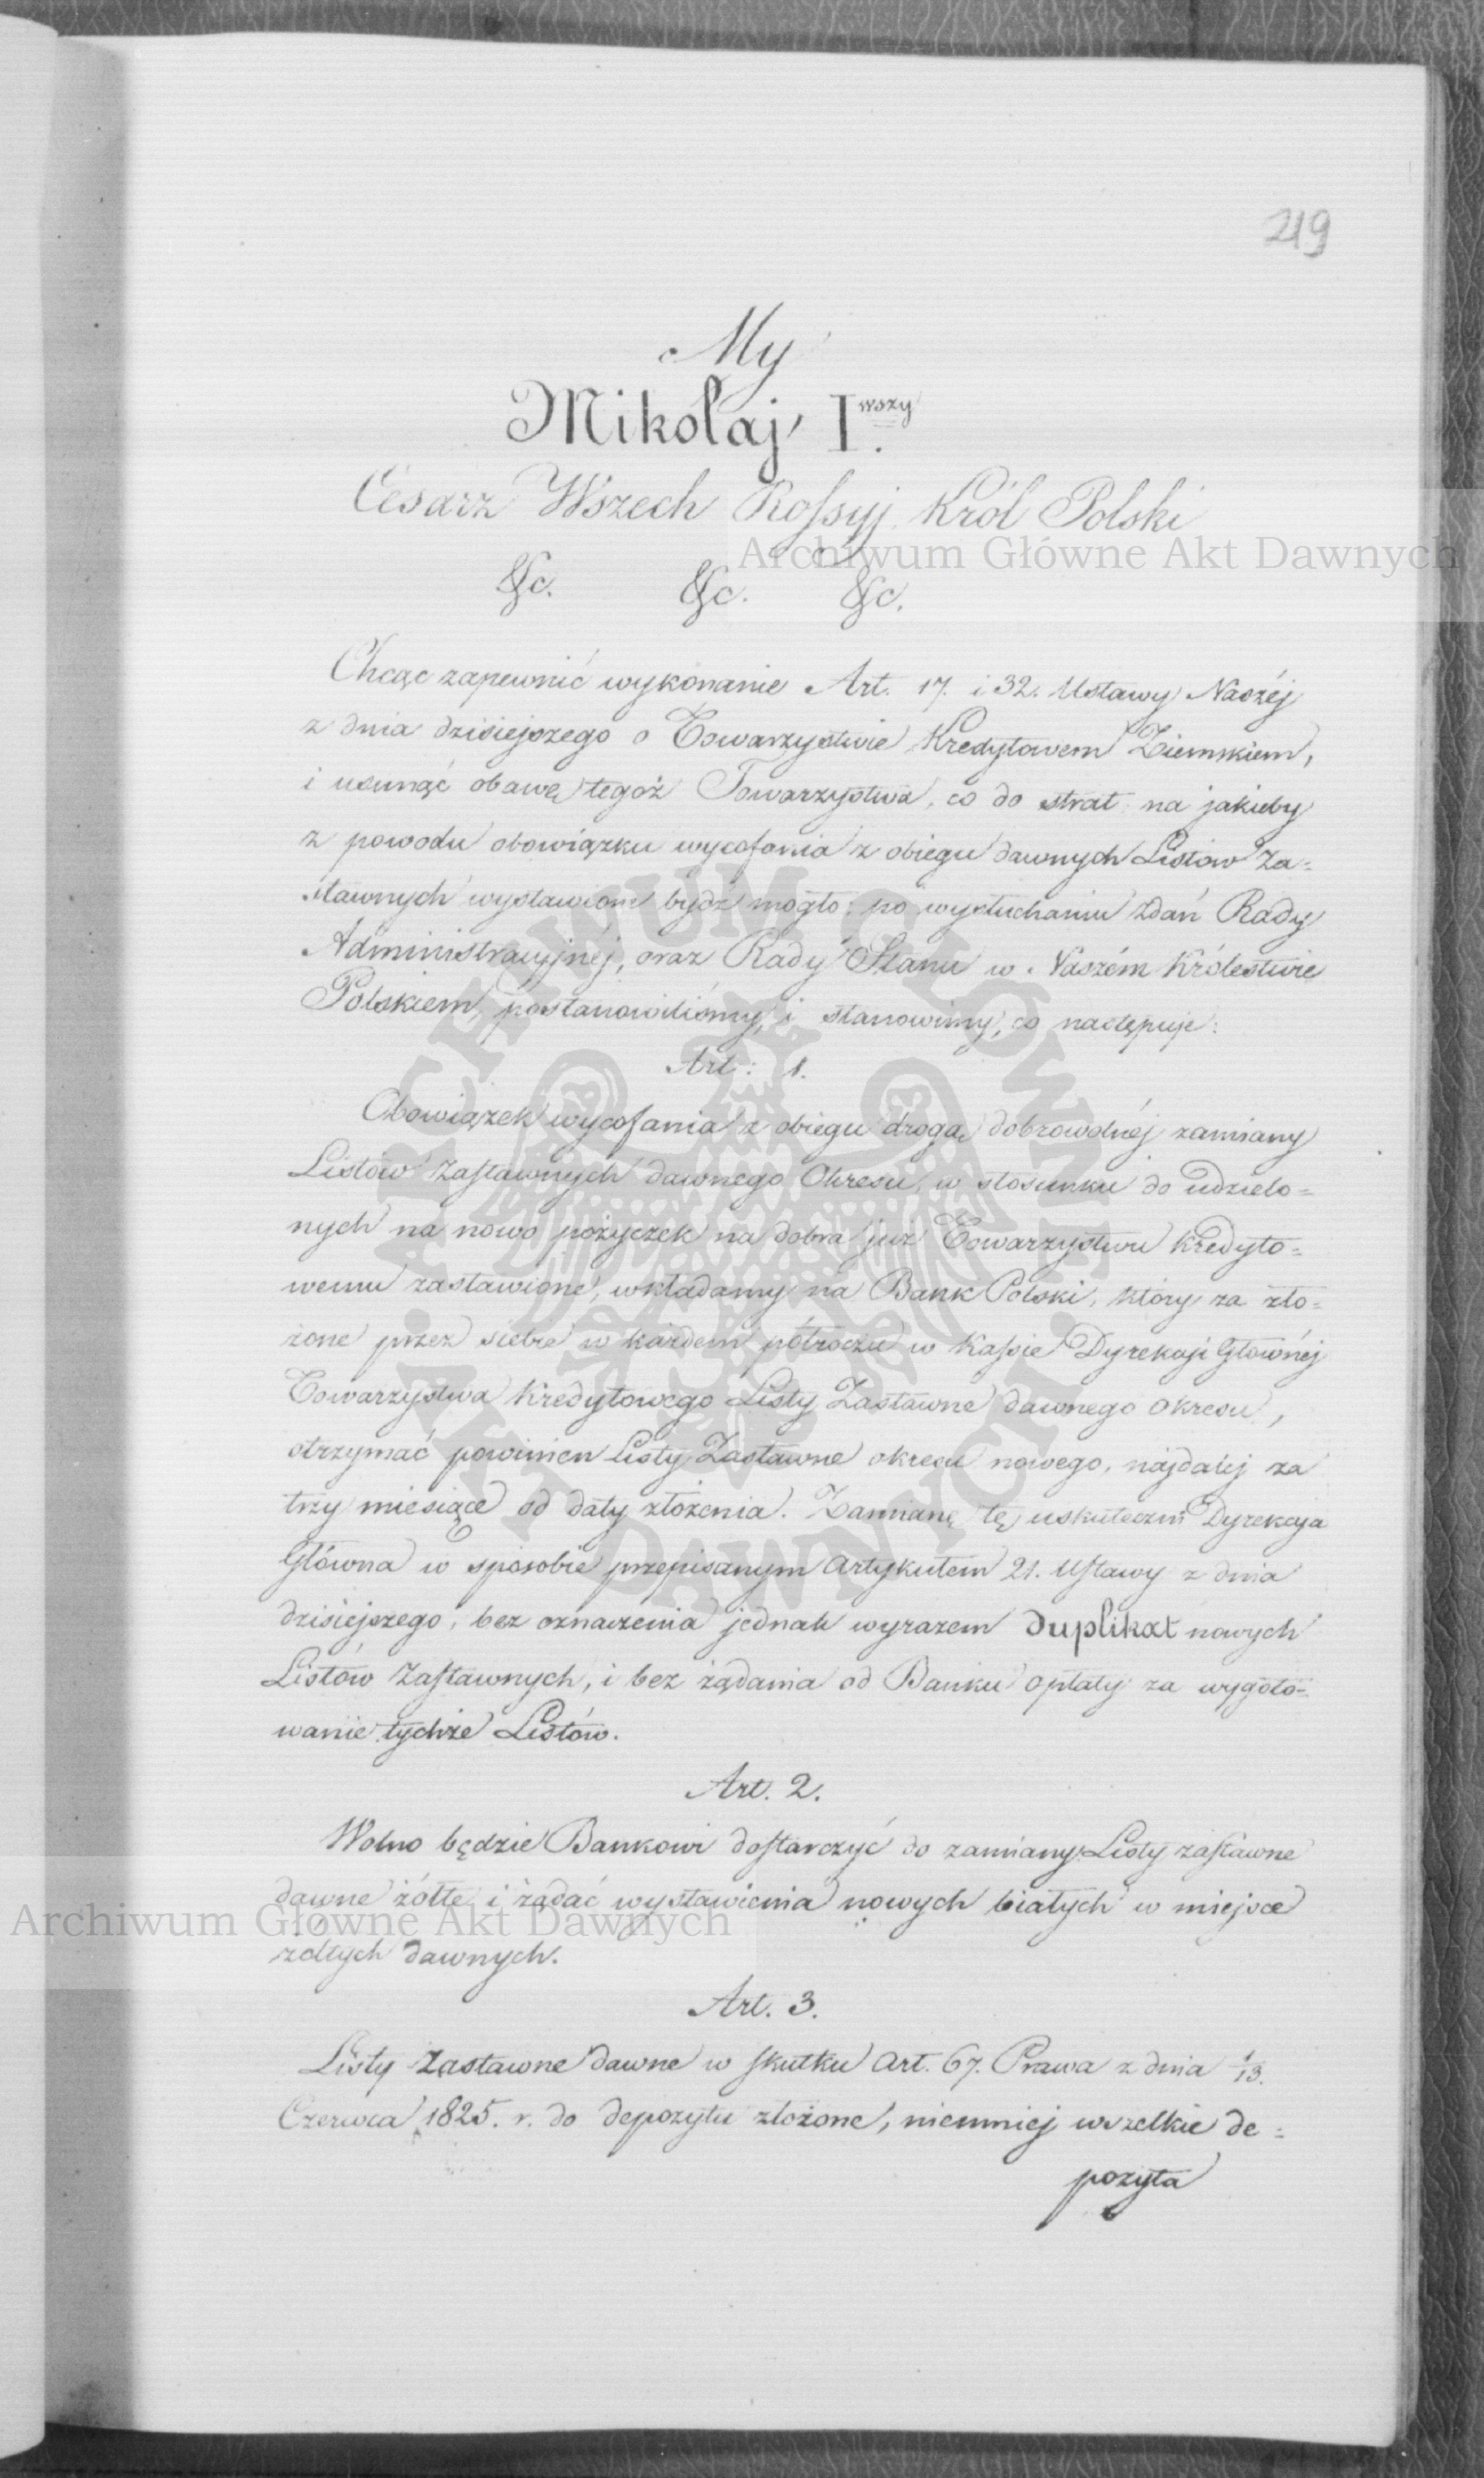 219
My
Mikołaj I.wszy
Cesarz Wszech Rossyj Król Polski
&c. &c. &c.
Chcąc zapewnić wykonanie Art. 17. i 32. Ustawy Naszéj
z dnia dzisiejszego o Towarzystwie Kredytowem Ziemskiem,
i usunąć obawę tegoż Towarzystwa, co do strat na jakieby
z powodu obowiązku wycofania z obiegu dawnych Listów Za=
stawnych wystawione bydź mogło; po wysłuchaniu zdań Rady
Administracyjnéj, oraz Rady Stanu w Naszém Królestwie
Polskiem, postanowiliśmy, i stanowimy, co następuje:
Art: 1.
Obowiązek wycofania z obiegu drogą dobrowolnéj zamiany
Listów Zastawnych dawnego Okresu, w stosunku do udzielo=
nych na nowo pożyczek na dobra już Towarzystwu Kredyto=
wemu zastawione, wkładamy na Bank Polski, który za zło=
żone przez siebie w każdem półroczu w Kassie Dyrekcji Głównéj
Towarzystwa Kredytowego Listy Zastawne dawnego okresu,
otrzymać powinien Listy Zastawne okresu nowego, najdaléj za
trzy miesiące od daty złożenia. Zamianę tę uskuteczni Dyrekcya
Główna w sposobie przepisanym Artykułem 21. Ustawy z dnia
dzisiejszego, bez oznaczenia jednak wyrazem duplikat nowych
Listów Zastawnych, i bez żądania od Banku opłaty za wygoto=
wanie tychże Listów.
Art. 2.
Wolno będzie Bankowi dostarczyć do zamiany Listy zastawne
dawne żółte i żądać wystawienia nowych białych w miejsce
żółtych dawnych.
Art. 3.
Listy Zastawne dawne w skutku Art. 67. Prawa z dnia 1/13.
Czerwca 1825. r. do depozytu złożone, niemniej wszelkie de=
pozyta
Archiwum Główne Akt Dawnych
Archiwum Główne Akt Dawnych
ARCHIWUM GŁÓWNE AKT DAWNYCH